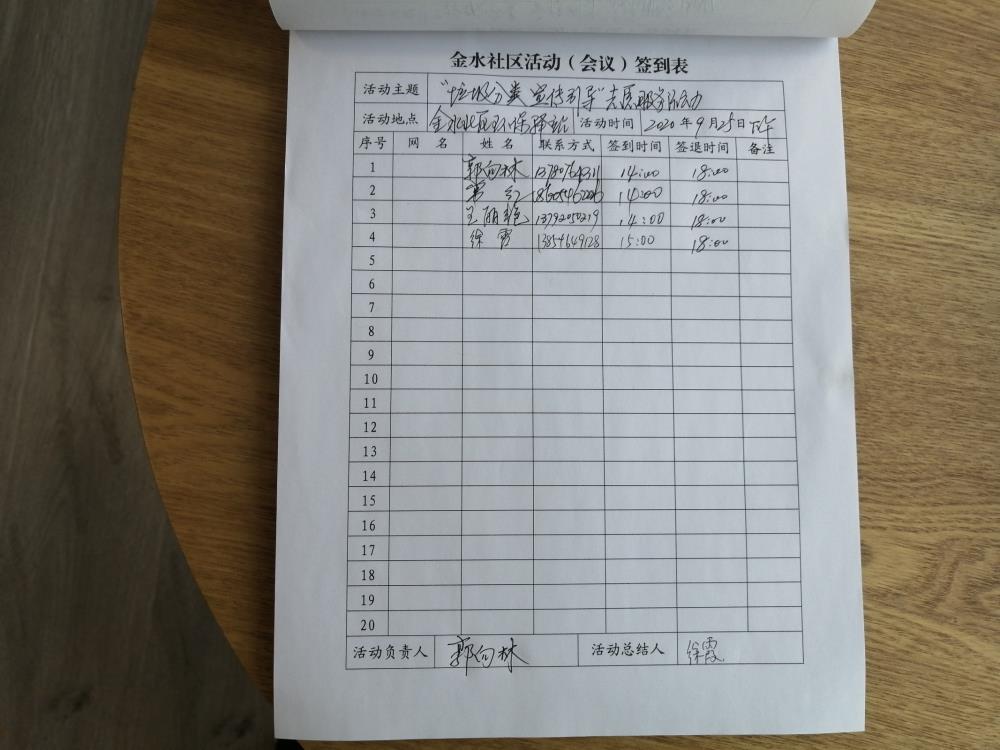 金水社区活动（会议）签到表
活动主题 "垃圾分类宣传引导"志愿服务活动
活动地点 金水社区环保驿站 活动时间 2020年9月25日下午
序号 网 名 姓 名 联系方式 签到时间 签退时间 备注
1 郭向林 14:00 18:00
2 14:00 18:00
3 王丽艳 13792050219 14:00 18:00
4 徐霞 13854649128 15:00 18:00
5
6
7
8
9
10
11
12
13
14
15
16
17
18
19
20
活动负责人 郭向林 活动总结人 徐霞